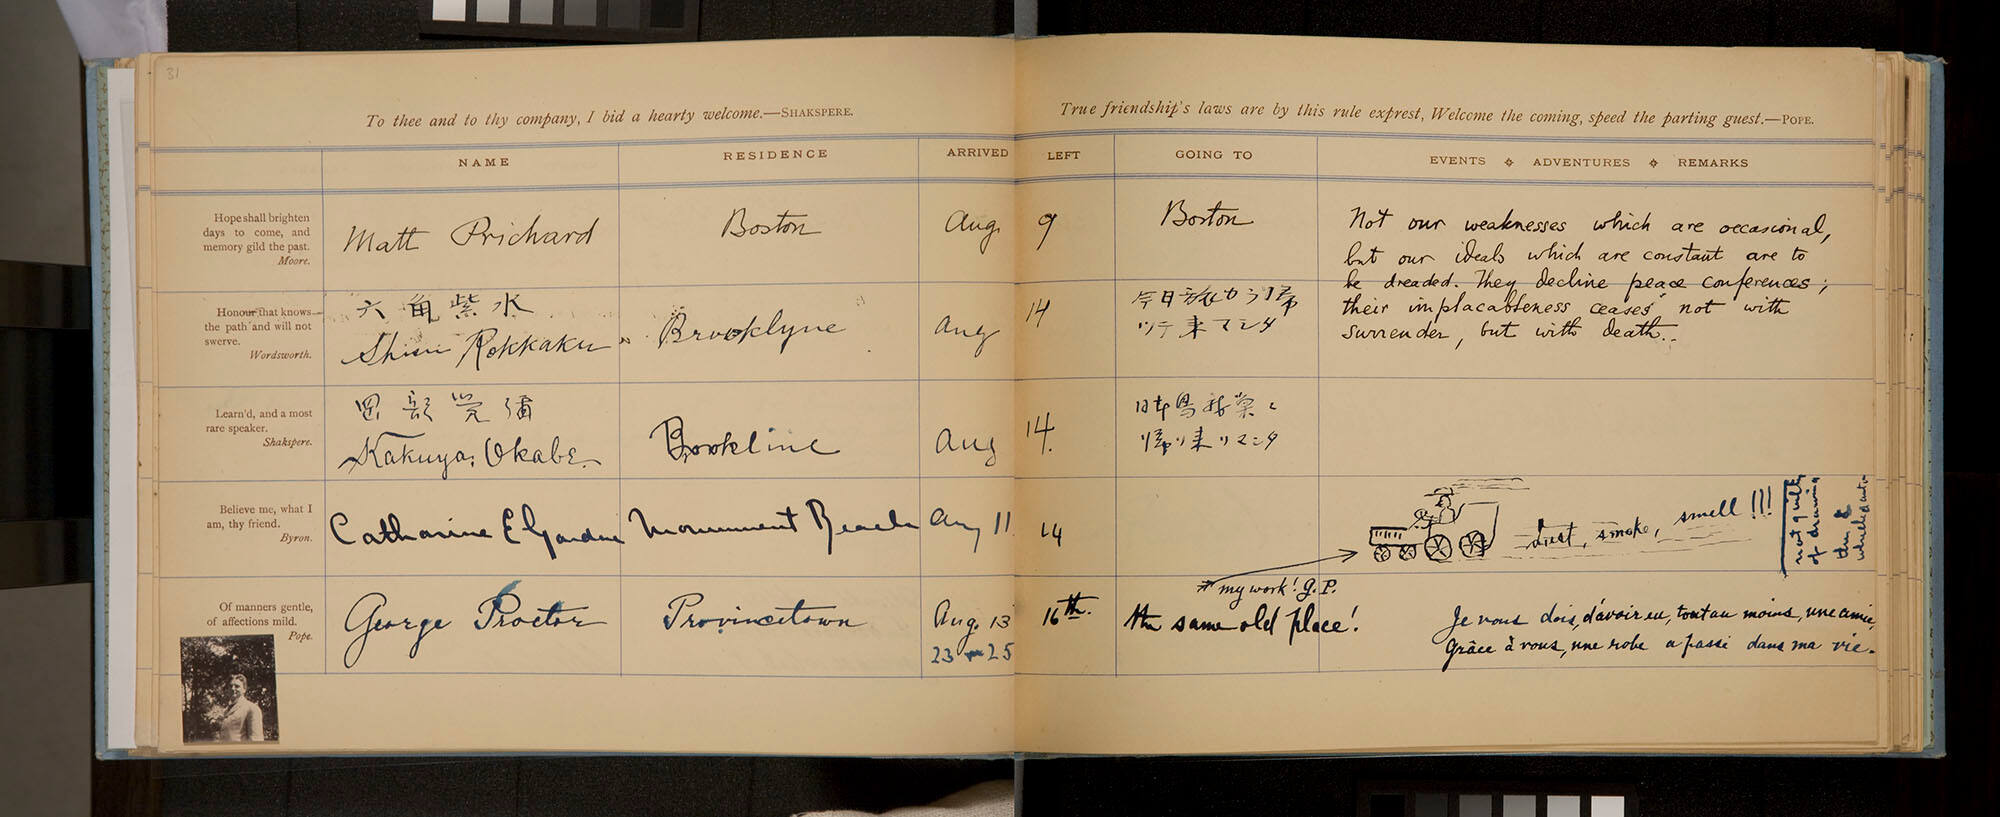 31
To thee and to thy company, I bid a hearty welcome.—SHAKSPERE.
True friendship's laws are by this rule exprest, Welcome the coming, speed the parting guest.—POPE.
NAME RESIDENCE ARRIVED LEFT GOING TO EVENTS ADVENTURES REMARKS
Hope shall brighten
days to come, and
memory gild the past.
Moore.
Matt Prichard Boston Aug. 9 Boston
Not our weaknesses which are occasional,
but our ideals which are constant are to
be dreaded. They decline peace conferences;
their implacableness ceases not with
surrender, but with death..
Honour that knows
the path and will not
swerve.
Wordsworth.
六角紫水
Shisui Rokkaku Brooklyne Aug 14
今日旅カラ帰
ツテ来マシタ
Learn'd, and a most
rare speaker.
Shakspere.
岡部覚彌
Kakuya Okabe Brookline Aug 14.
帰リ来リマシタ
Believe me, what I
am, thy friend.
Byron.
Catharine E Gardner Monument Beach Aug 11 14
dust, smoke, smell!!!
not guilty
of drawing
this
my work! G.P.
Of manners gentle,
of affections mild.
Pope.
George Proctor Provincetown Aug. 13 16th. the same old place!
23 - 25
Je vous dois, d'avoir eu, tout au moins, une amie,
Grâce à vous, une robe a passé dans ma vie.